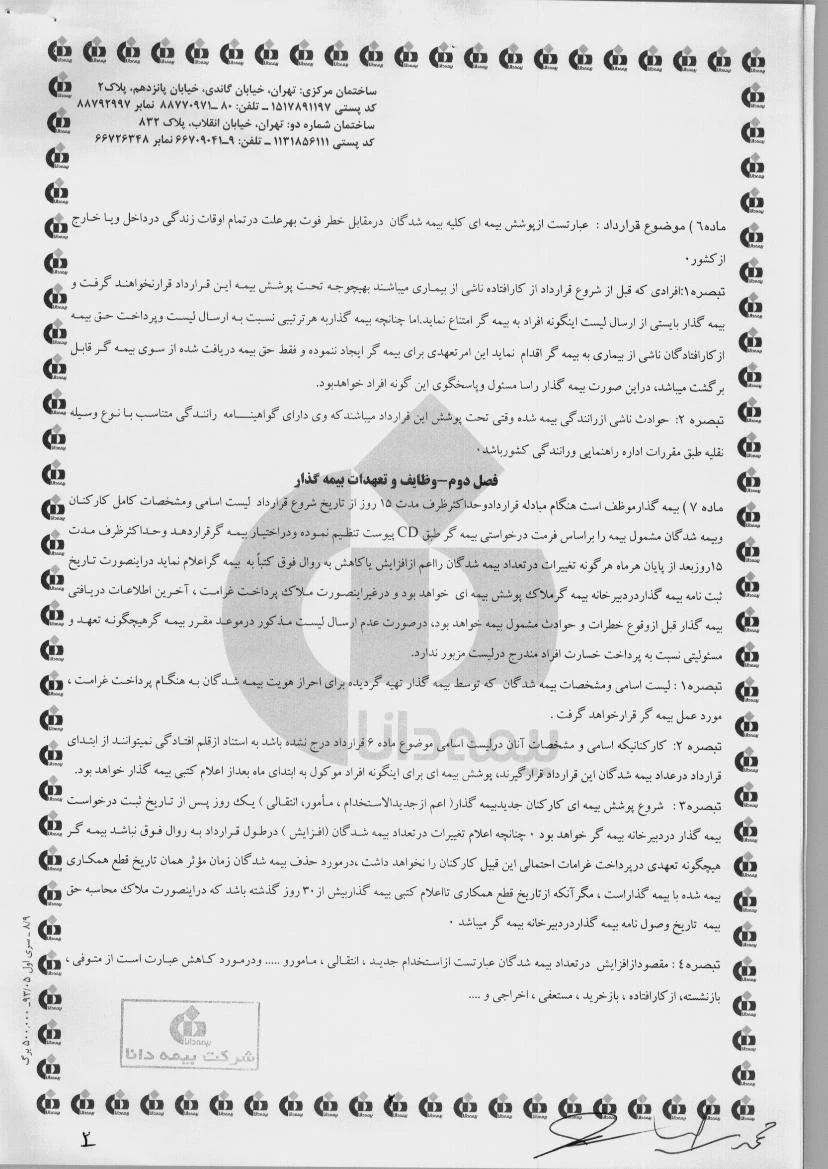 ساختمان مرکزی: تهران، خیابان گاندی، خیابان پانزدهم، پلاک۲
کد پستی ۱۵۱۷۸۹۱۱۹۷ ـ تلفن: ۸۰ ـ۸۸۷۷۰۹۷۱ نمابر ۸۸۷۹۲۹۹۷
ساختمان شماره دو: تهران، خیابان انقلاب، پلاک ۸۳۲
کد پستی ۱۱۳۱۸۵۶۱۱۱ ـ تلفن: ۹ـ۶۶۷۰۹۰۴۱ نمابر ۶۶۷۲۶۳۴۸
ماده٦ ) موضوع قرارداد : عبارتست ازپوشش بیمه ای کلیه بیمه شدگان درمقابل خطر فوت بهرعلت درتمام اوقات زندگی درداخل ویا خارج
ازکشور۰
تبصره۱:افرادی که قبل از شروع قرارداد از کارافتاده ناشی از بیماری میباشند بهیچوجه تحت پوشش بیمه این قرارداد قرارنخواهند گرفت و
بیمه گذار بایستی از ارسال لیست اینگونه افراد به بیمه گر امتناع نماید.اما چنانچه بیمه گذاربه هرترتیبی نسبت به ارسال لیست وپرداخت حق بیمه
ازکارافتادگان ناشی از بیماری به بیمه گر اقدام نماید این امرتعهدی برای بیمه گر ایجاد ننموده و فقط حق بیمه دریافت شده از سوی بیمه گر قابل
برگشت میباشد، دراین صورت بیمه گذار راسا مسئول وپاسخگوی این گونه افراد خواهدبود.
تبصره ۲: حوادث ناشی ازرانندگی بیمه شده وقتی تحت پوشش این قرارداد میباشندکه وی دارای گواهینـــامه رانندگی متناسب با نوع وسیله
نقلیه طبق مقررات اداره راهنمایی ورانندگی کشورباشد۰
فصل دوم–وظایف و تعهدات بیمه گذار
ماده ۷ ) بیمه گذارموظف است هنگام مبادله قراردادوحداکثرظرف مدت ۱۵ روز از تاریخ شروع قرارداد لیست اسامی ومشخصات کامل کارکنان
وبیمه شدگان مشمول بیمه را براساس فرمت درخواستی بیمه گر طبق CD پیوست تنظیم نموده ودراختیار بیمه گرقراردهد وحداکثرظرف مدت
۱۵روزبعد از پایان هرماه هرگونه تغییرات درتعداد بیمه شدگان رااعم ازافزایش یاکاهش به روال فوق کتباً به بیمه گراعلام نماید دراینصورت تاریخ
ثبت نامه بیمه گذاردردبیرخانه بیمه گرملاک پوشش بیمه ای خواهد بود و درغیراینصورت ملاک پرداخت غرامت ، آخرین اطلاعات دریافتی
بیمه گذار قبل ازوقوع خطرات و حوادث مشمول بیمه خواهد بود، درصورت عدم ارسال لیست مذکور درموعد مقرر بیمه گرهیچگونه تعهد و
مسئولیتی نسبت به پرداخت خسارت افراد مندرج درلیست مزبور ندارد.
تبصره۱ : لیست اسامی ومشخصات بیمه شدگان که توسط بیمه گذار تهیه گردیده برای احراز هویت بیمه شدگان به هنگام پرداخت غرامت ،
مورد عمل بیمه گر قرارخواهد گرفت .
تبصره ۲: کارکنانیکه اسامی و مشخصات آنان درلیست اسامی موضوع ماده ۶ قرارداد درج نشده باشد به استناد ازقلم افتادگی نمیتوانند از ابتدای
قرارداد درعداد بیمه شدگان این قرارداد قرارگیرند، پوشش بیمه ای برای اینگونه افراد موکول به ابتدای ماه بعداز اعلام کتبی بیمه گذار خواهد بود.
تبصره۳ : شروع پوشش بیمه ای کارکنان جدیدبیمه گذار( اعم ازجدیدالاستخدام ، مأمور، انتقالی ) یک روز پس از تاریخ ثبت درخواست
بیمه گذار دردبیرخانه بیمه گر خواهد بود ۰ چنانچه اعلام تغییرات درتعداد بیمه شدگان (افزایش ) درطول قرارداد به روال فوق نباشد بیمه گر
هیچگونه تعهدی درپرداخت غرامات احتمالی این قبیل کارکنان را نخواهد داشت ،درمورد حذف بیمه شدگان زمان مؤثر همان تاریخ قطع همکاری
بیمه شده با بیمه گذاراست ، مگرآنکه ازتاریخ قطع همکاری تااعلام کتبی بیمه گذاربیش از۳۰ روز گذشته باشد که دراینصورت ملاک محاسبه حق
بیمه تاریخ وصول نامه بیمه گذاردردبیرخانه بیمه گر میباشد ۰
تبصره٤ : مقصودازافزایش درتعداد بیمه شدگان عبارتست ازاستخدام جدید ، انتقالی ، مامورو ..... ودرمورد کاهش عبارت است از متوفی ،
بازنشسته، ازکارافتاده ، بازخرید ، مستعفی ، اخراجی و ....
بیمه دانا
شرکت بیمه دانا
۸/۹ ـ سری اول ۹۳/۰۵ـ ۵۰۰.۰۰۰ برگ
۲